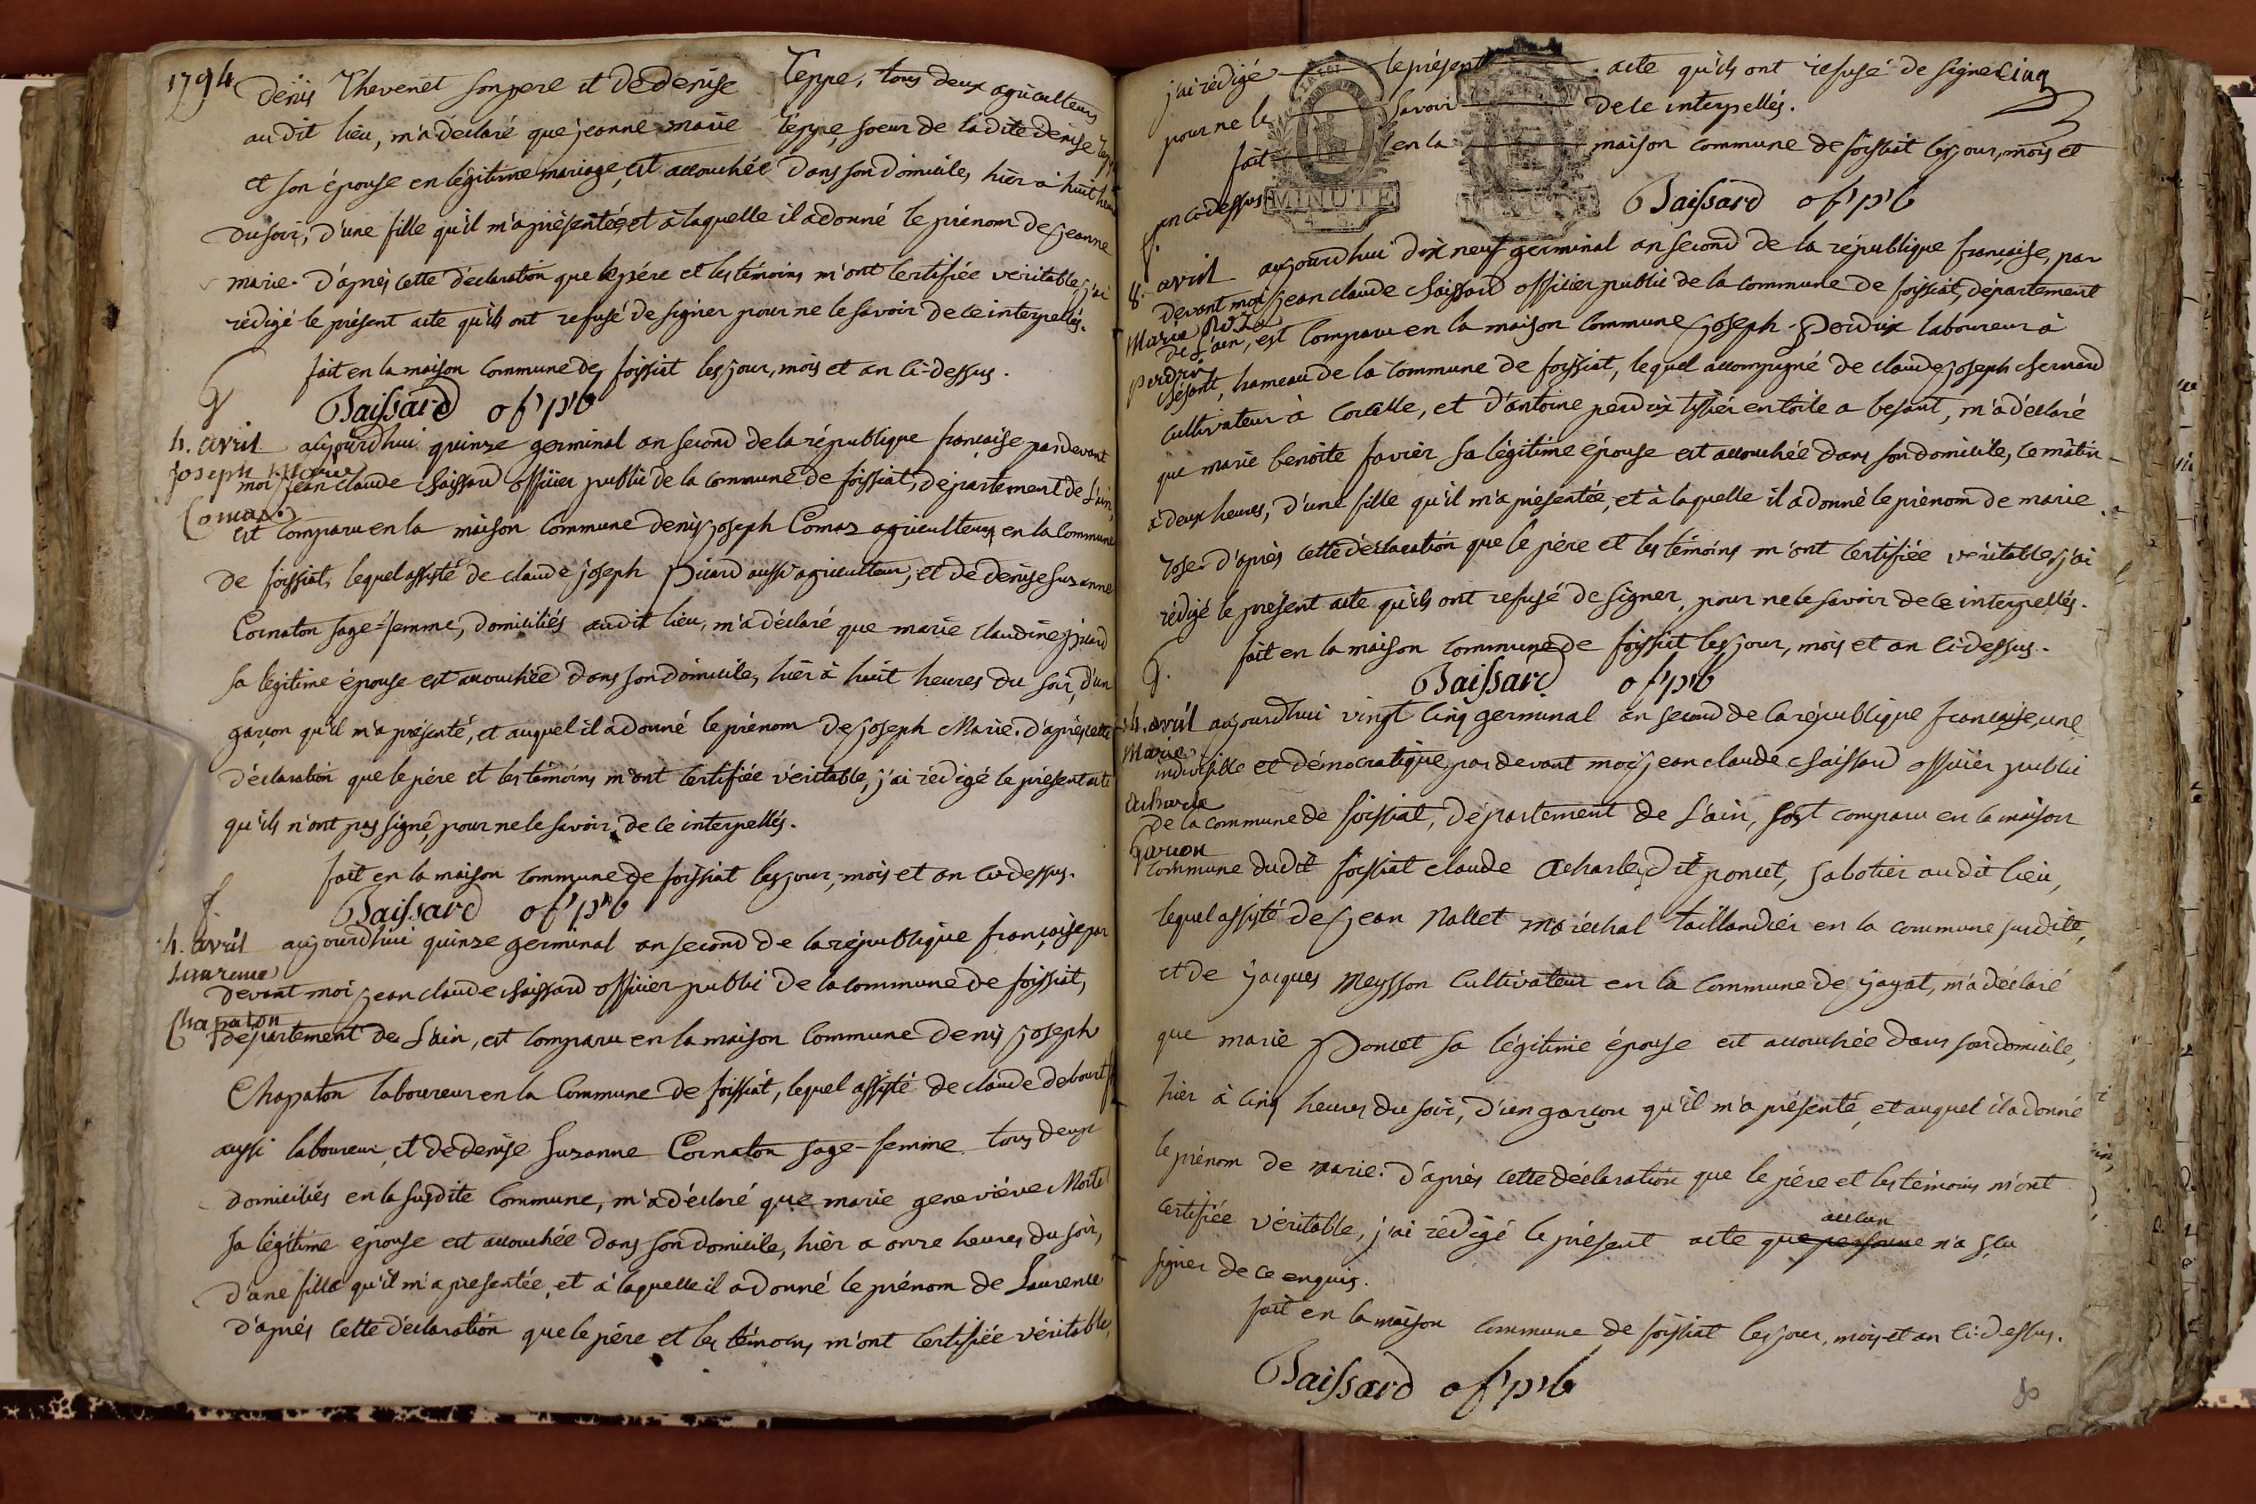 1794
denis Thevenet son pere et de denise Teppe, tous deux agriculteurs
audit lieu, m'a déclaré que jeanne marie Teppe, soeur de ladite denise
et son épouse en légitime mariage, est accouchée dans son domicile, hier à huit heures
du soir, d'une fille qu'il m'a présentée, et à laquelle il a donné le prénom de jeanne
marie. d'après cette déclaration que le père et les témoins m'ont certifiée veritable, j'ai
rédigé le présent acte qu'ils ont refusé de signer pour ne le savoir de ce interpellés.
fait en la maison commune de foissiat les jour, mois et an ci-dessus.
Chaissard of. p. b
4. avril
joseph Marie
Comas
aujourdhui quinze germinal an second de la république française pardevant
moi jean claude Chaissard officier public de la commune de foissiat, département de L'ain,
est comparu en la maison commune denis joseph Comas agriculteur en la commune
de foissiat, lequel assisté de claude joseph picard aussi agriculteur, et de denise suzanne
Cornaton sage-femme, domiciliés audit lieu, m'a déclaré que marie claudine picard
sa légitime épouse est accouchée dans son domicile, hier à huit heures du soir, d'un
garçon qu'il m'a présenté, et auquel il a donné le prénom de joseph Marie. d'après cette
déclaration que le père et les témoins m'ont certifiée véritable, j'ai rédigé le présent acte
qu'ils n'ont pas signé, pour ne le savoir, de ce interpellés.
fait en la maison commune de foissiat les jour, mois et an ci-dessus.
Chaissard of. p. b
4. avril
Laurence
Chapaton
aujourdhui quinze germinal an second de la république française, par
devant moi jean claude Chaissard officier public de la commune de foissiat,
département de L'ain, est comparu en la maison commune denis joseph
Chapaton laboureur en la commune de foissiat, lequel assisté de claude debourt
aussi laboureur, et de denise suzanne Cornaton sage-femme tous deux
domiciliés en la susdite commune, m'a déclaré que marie geneviève Motte
sa légitime épouse est accouchée dans son domicile, hier a onze heures du soir,
d'une fille qu'il m'a presentée, et à laquelle il a donné le prénom de Laurence
d'après cette déclaration que le père et les témoins m'ont certifiée véritable,
j'ai rédigé le présent acte qu'ils ont refusé de signer cinq
pour ne le savoir de ce interpellés.
fait en la maison commune de foissiat les jour, mois et
an ci-dessus.
MINUTE
MINUTE
Chaissard of. p. b
8. avril
Marie Roze
perdrix
aujourdhui dix neuf germinal an second de la république française, par
devant moi jean claude Chaissard officier public de la commune de foissiat, département
de L'ain, est comparu en la maison commune joseph Perdrix laboureur à
bésant, hameau de la commune de foissiat, lequel accompagné de claude joseph chernard
cultivateur à corcelle, et d'antoine perdrix tissier en toile a besant, m'a déclaré
que marie benoite favier sa légitime épouse est accouchée dans son domicile, ce matin
à deux heures, d'une fille qu'il m'a présentée, et à laquelle il a donné le prénom de marie
rose. d'après cette déclaration que le père et les témoins m'ont certifiée veritable, j'ai
rédigé le présent acte qu'ils ont refusé de signer, pour ne le savoir de ce interpellés.
fait en la maison commune de foissiat les jour, mois et an ci-dessus.
Chaissard of. p. b
14. avril
Marie
Acharle
Garçon
aujourdhui vingt cinq germinal an second de la république française, une
indivisible et démocratique, par devant moi jean claude Chaissard officier public
de la commune de foissiat, département de L'ain, est comparu en la maison
commune dudit foissiat claude Acharle, dit poncet, sabotier audit lieu,
lequel assisté de jean Nallet maréchal taillandier en la commune susdite,
et de jacques Meysson cultivateur en la commune de jayat, m'a déclaré
que marie Poncet sa légitime épouse est accouchée dans son domicile,
hier à cinq heures du soir, d'un garçon qu'il m'a présenté, et auquel il a donné
le prénom de marie. d'après cette déclaration que le père et les témoins m'ont
certifiée véritable, j'ai rédigé le présent acte que personne aucun n'a sçu
signer de ce enquis.
fait en la maison commune de foissiat les jour, mois et an ci-dessus.
Chaissard of. p. b